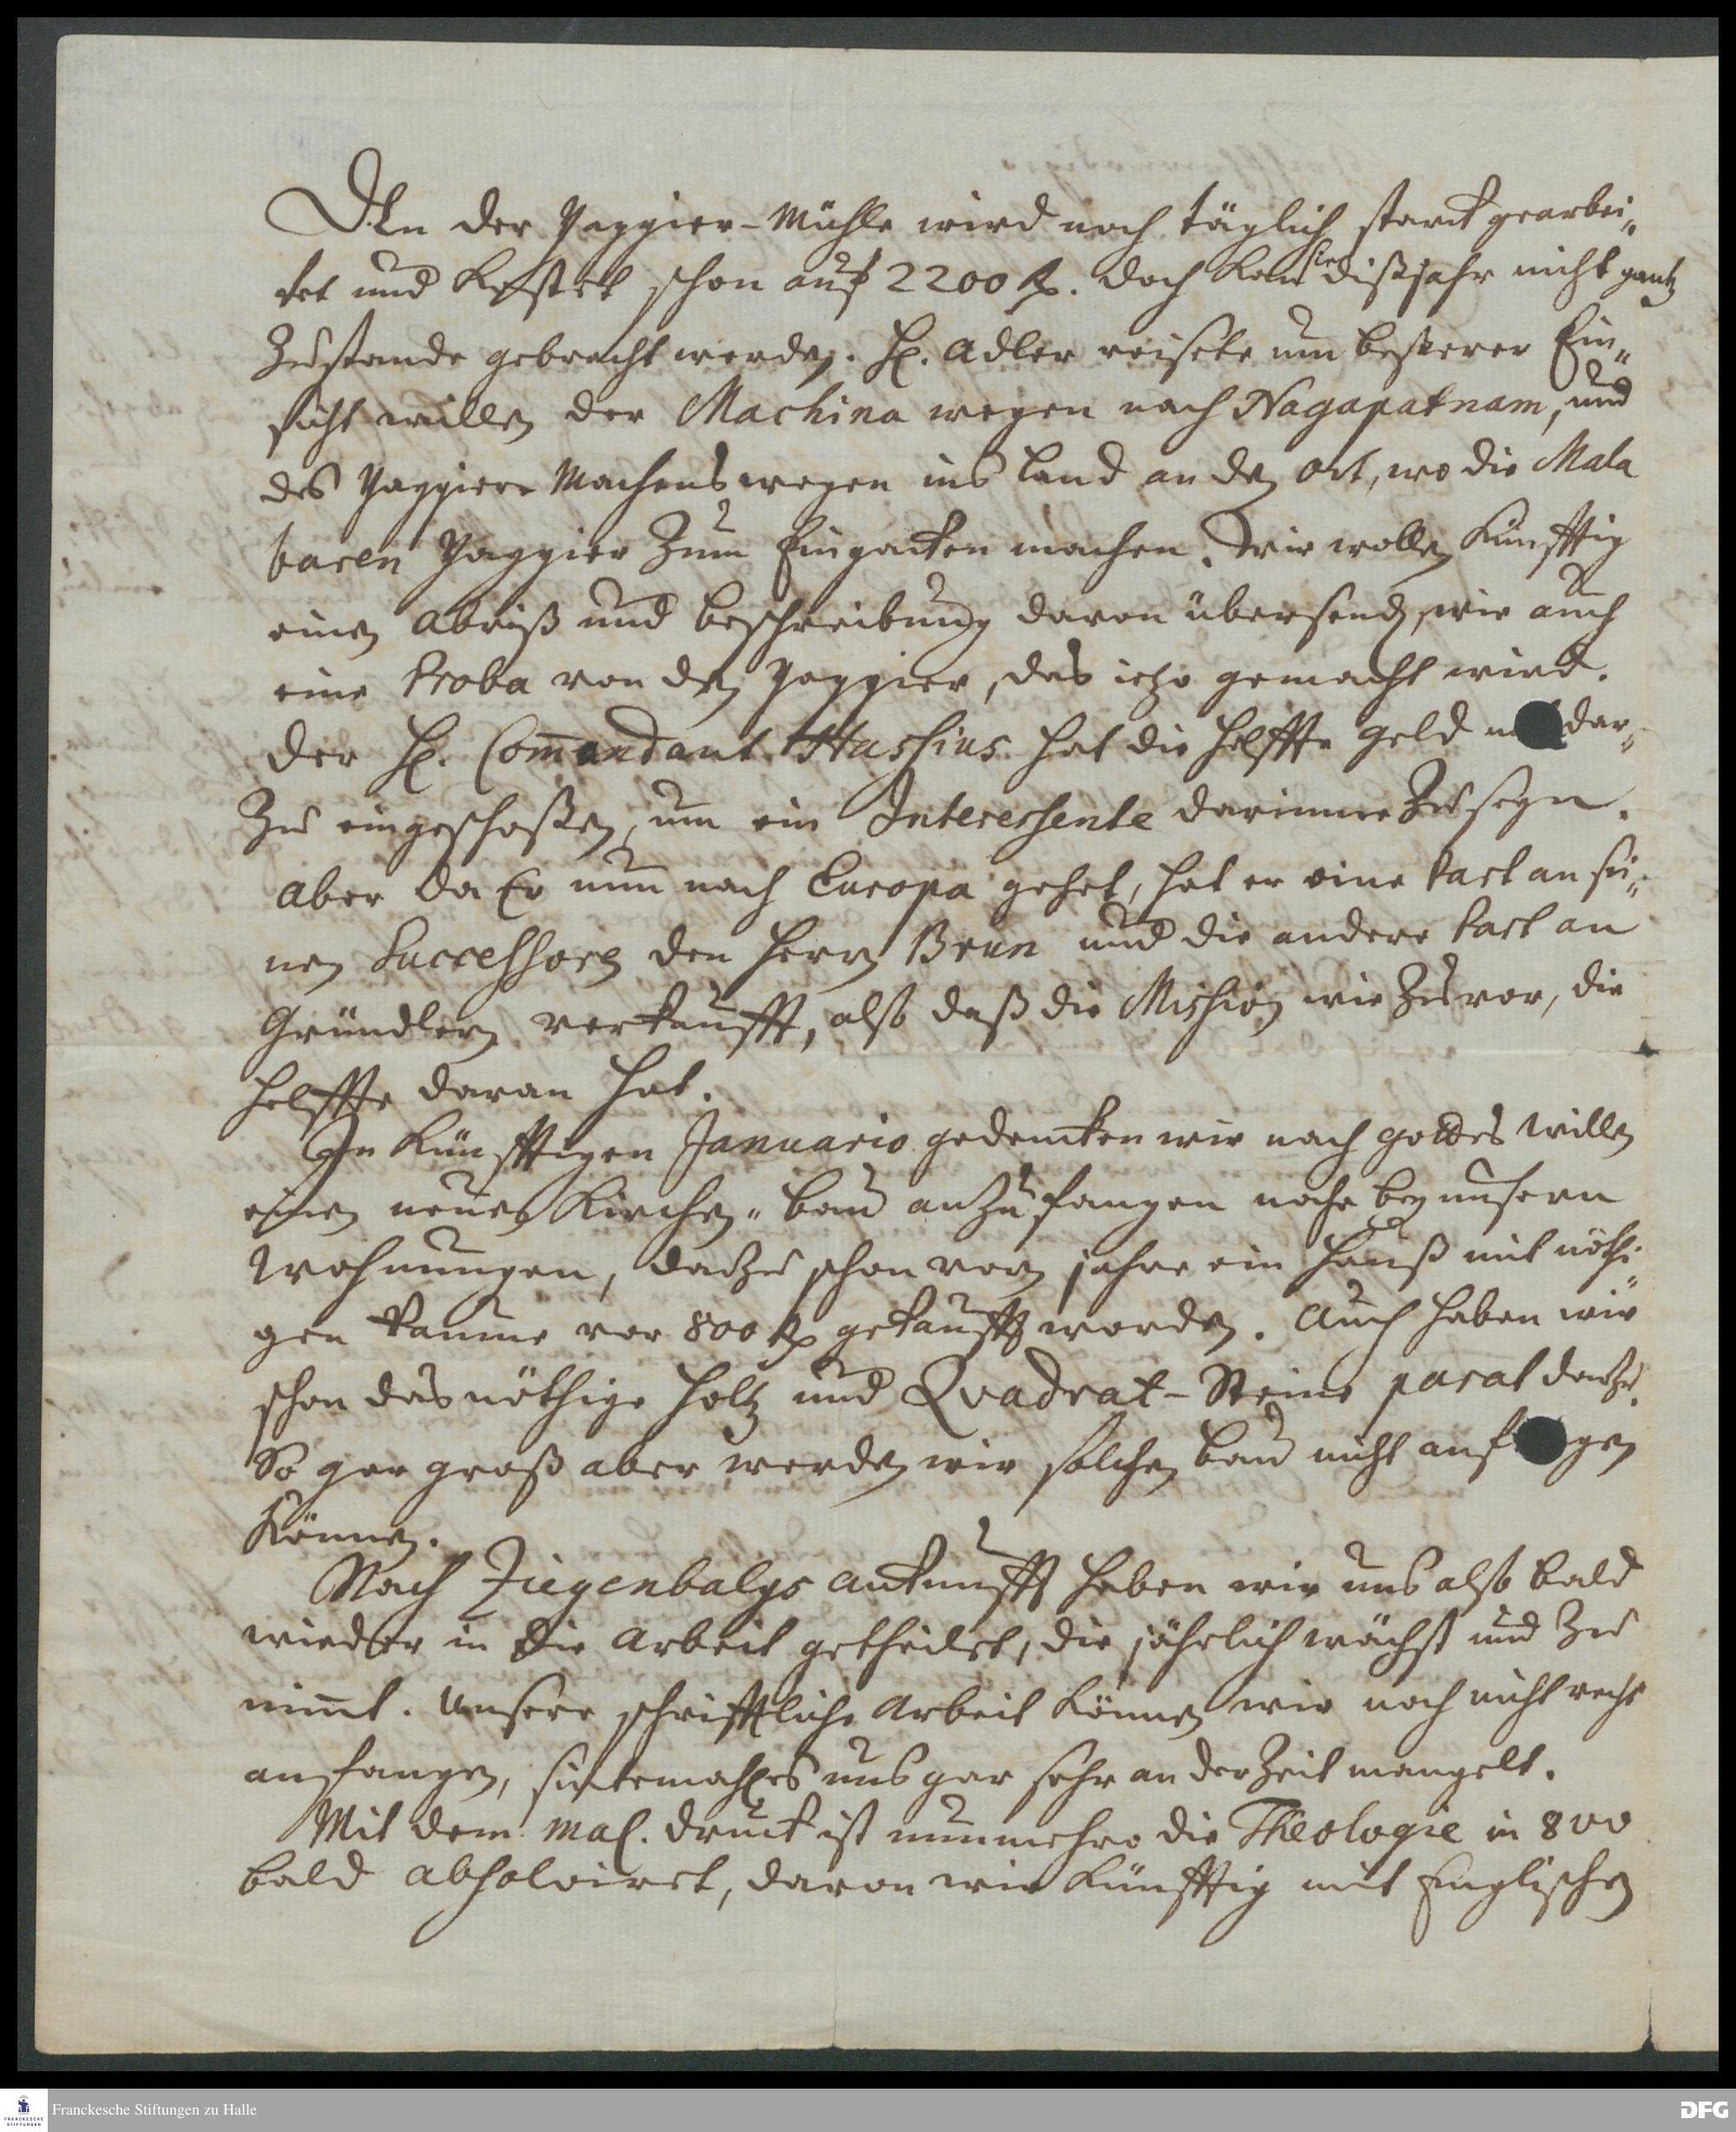 An der Pappier-Mühle wird noch täglich starck gearbei„
tet und kostet schon auf 2200 Rp. doch kan sie dißjahr nicht gantz
Zustande gebracht werden. H. Adler reisete um besserer Ein„
sicht willen der Machina wegen nach Nagapatnam, und
des Pappier Machens wegen ins Land an den ort, wo die Mala
baren Pappier Zum Einpacken machen. Wir wollen künfftig
einen Abriß und beschreibung davon übersend, wie auch
eine Proba von den Pappier, das ietzo gemacht wird.
der H. Com̄andant Hassius hat die Helffte geld dar„
Zu eingeschoßen, um ein Interessente darinne Zu seyn.
Aber da Er nun nach Europa gehet, hat er eine Part an sei„
nen Successoren den Herrn Brun und die andere Part an
Gründlern verkaufft, also daß die Mission wie Zuvor, die
Helffte daran hat.
In künfftigen Januario gedencken wir nach gottes willen
einen neuen Kirchen„bau anZufangen nahe bey unsern
Wohnungen, dazu schon vorm jahre ein Hauß mit nöthi„
gen Raume vor 800 Rp gekaufft worden. Auch haben wir
schon das nöthige Holtz und Qvadrat-Steine parat dazu.
So gar groß aber werden wir solchen bau nicht anf gen
können.
Nach Ziegenbalgs ankunfft haben wir uns also bald
wieder in die Arbeit getheilet, die jährlich wächst und Zu
nim̄t. Unsere schrifftliche Arbeit können wir noch nicht recht
anfangen, sintemahl es uns gar sehr an der Zeit mangelt.
Mit dem Mal. druck ist nunmehro die Theologie in 800
bald absolviret, davon wir künfftig mit Englischen
Franckesche Stiftungen zu Halle
FRANCKESCHE
STIFTUNGEN
DFG